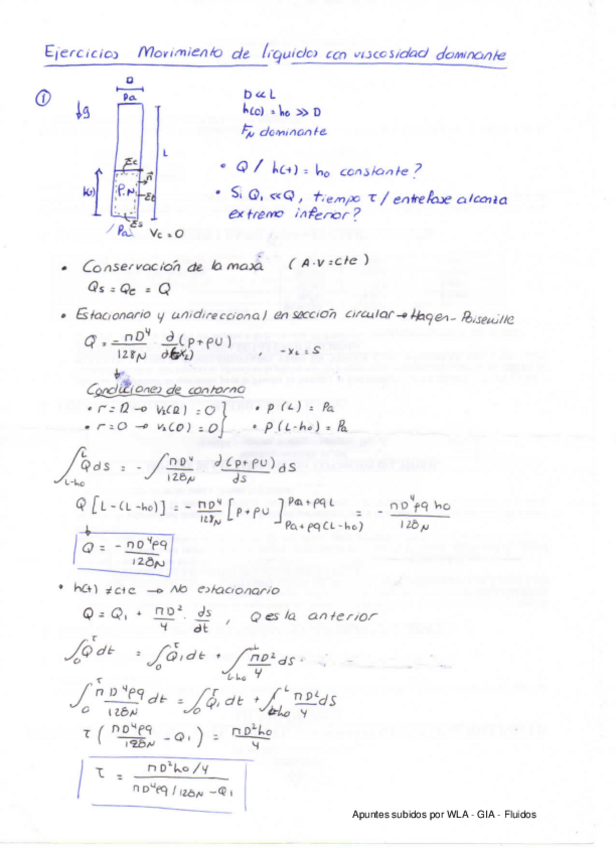 Ejercicios Movimiento de líquidos con viscosidad dominante
① ↓g
D
Pa
L
h(t)
Σc
n
P.N.
Σl
Σs
Pa
Vc = 0
D << L
h(0) = ho >> D
Fμ dominante
• Q / h(t) = ho constante?
• Si Q1 << Q, tiempo τ / entrefase alcanza
extremo inferior?
• Conservación de la masa ( A·V = cte )
Qs = Qe = Q
• Estacionario y unidireccional en sección circular → Hagen-Poiseuille
Q = -πD⁴/128μ · ∂(p+ρU)/∂(x2) , -x2 = s
Condiciones de contorno
• r = R → v2(R) = 0 } • p(L) = Pa
• r = 0 → v2(0) = 0 } • p(L-ho) = Pa
∫_{L-ho}^{L} Q ds = -∫ πD⁴/128μ ∂(p+ρU)/ds ds
Q [L-(L-ho)] = - πD⁴/128μ [p+ρU]_{Pa+ρg(L-ho)}^{Pa+ρgL} = - πD⁴ρg ho/128μ
Q = - πD⁴ρg/128μ
• h(t) ≠ cte → No estacionario
Q = Q1 + πD²/4 · ds/dt , Q es la anterior
∫_0^τ Q dt = ∫_0^τ Q1 dt + ∫_{L-ho}^{L} πD²/4 ds
∫_0^τ πD⁴ρg/128μ dt = ∫_0^τ Q1 dt + ∫_{L-ho}^{L} πD²/4 ds
τ ( πD⁴ρg/128μ - Q1 ) = πD²ho/4
τ = (πD²ho/4)/(πD⁴ρg/128μ - Q1)
Apuntes subidos por WLA - GIA - Fluidos